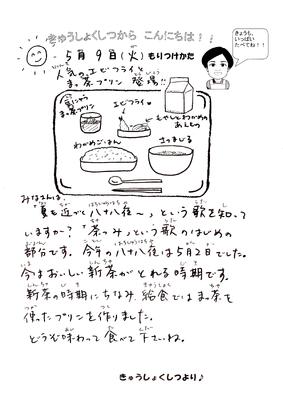 きゅうしょくしつから こんにちは!!
きょうも、
いっぱい
たべてね!!
5月9日(火) もりつけかた
人気のエビフライと
まっ茶プリン 登場!!
まっ茶プリン
エビフライ
もやしとわかめの
あえもの
わかめごはん
さつまじる
みなさんは、
"夏も近づく八十八夜〜"という歌を知って
いますか?「茶つみ」という歌のはじめの
部分です。今年の八十八夜は5月2日でした。
今はおいしい新茶がとれる時期です。
新茶の時期にちなみ、給食ではまっ茶を
使ったプリンを作りました。
どうぞ味わって食べて下さいね。
きゅうしょくしつより♪